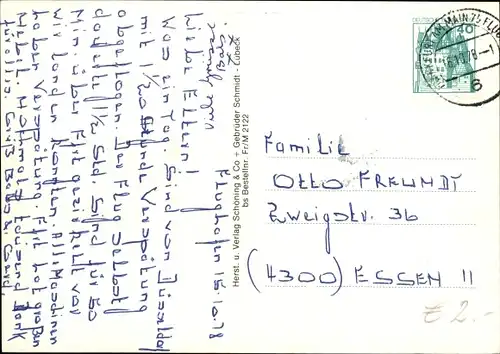 Flughafen 15.10.78
Lieber Eltern!
Was ein Tag. Sind von Düsseldorf
mit 1 1/2 Stunde Verspätung
abgeflogen. Der Flug selbst
dauerte 1/2 Std. Sind für 50
Min. über Frf. gekreist vor
wir landen konnten. Alle Maschinen
haben Verspätung. Frf. hat großen
Nebel. Nochmals tausend Dank
für alles. Gruß
viele Grüsse
Herst. u. Verlag Schöning & Co + Gebrüder Schmidt - Lübeck
bs Bestellnr. Fr/M 2122
DEUTSCHE
40
FRANKFURT AM MAIN 75 FLUGH
6
Familie
Otto FREUNDT
Zweigstr. 36
(4300) ESSEN 11
€ 2.-